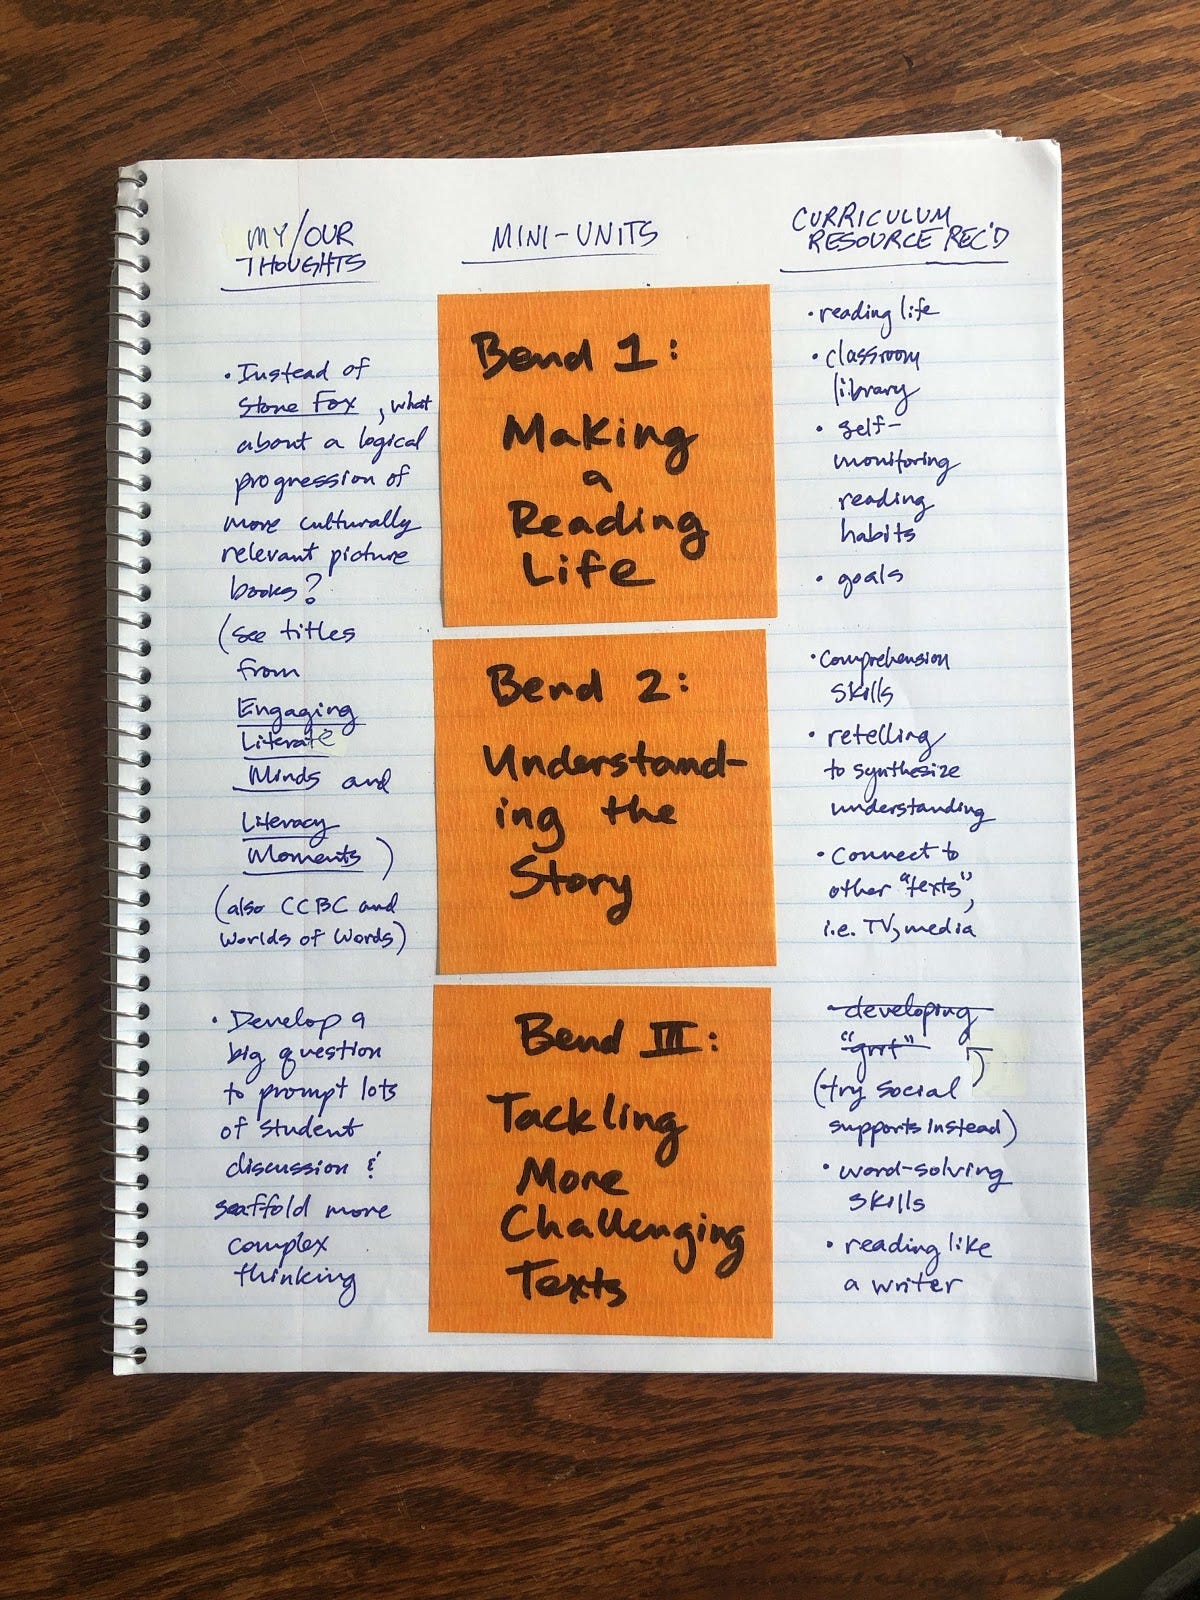 MY/OUR
THOUGHTS
• Instead of
Stone Fox, what
about a logical
progression of
more culturally
relevant picture
books?
(see titles
from
Engaging
Literate
Minds and
Literacy
Moments)
(also CCBC and
Worlds of Words)
• Develop a
big question
to prompt lots
of student
discussion &
scaffold more
complex
thinking
MINI-UNITS
Bend 1:
Making
a
Reading
Life
Bend 2:
Understand-
ing the
Story
Bend III:
Tackling
More
Challenging
Texts
CURRICULUM
RESOURCE REC'D
• reading life
• classroom
library
• self-
monitoring
reading
habits
• goals
• comprehension
skills
• retelling
to synthesize
understanding
• Connect to
other "texts",
i.e. TV, media
• developing
"grit"
(try social
supports instead)
• word-solving
skills
• reading like
a writer